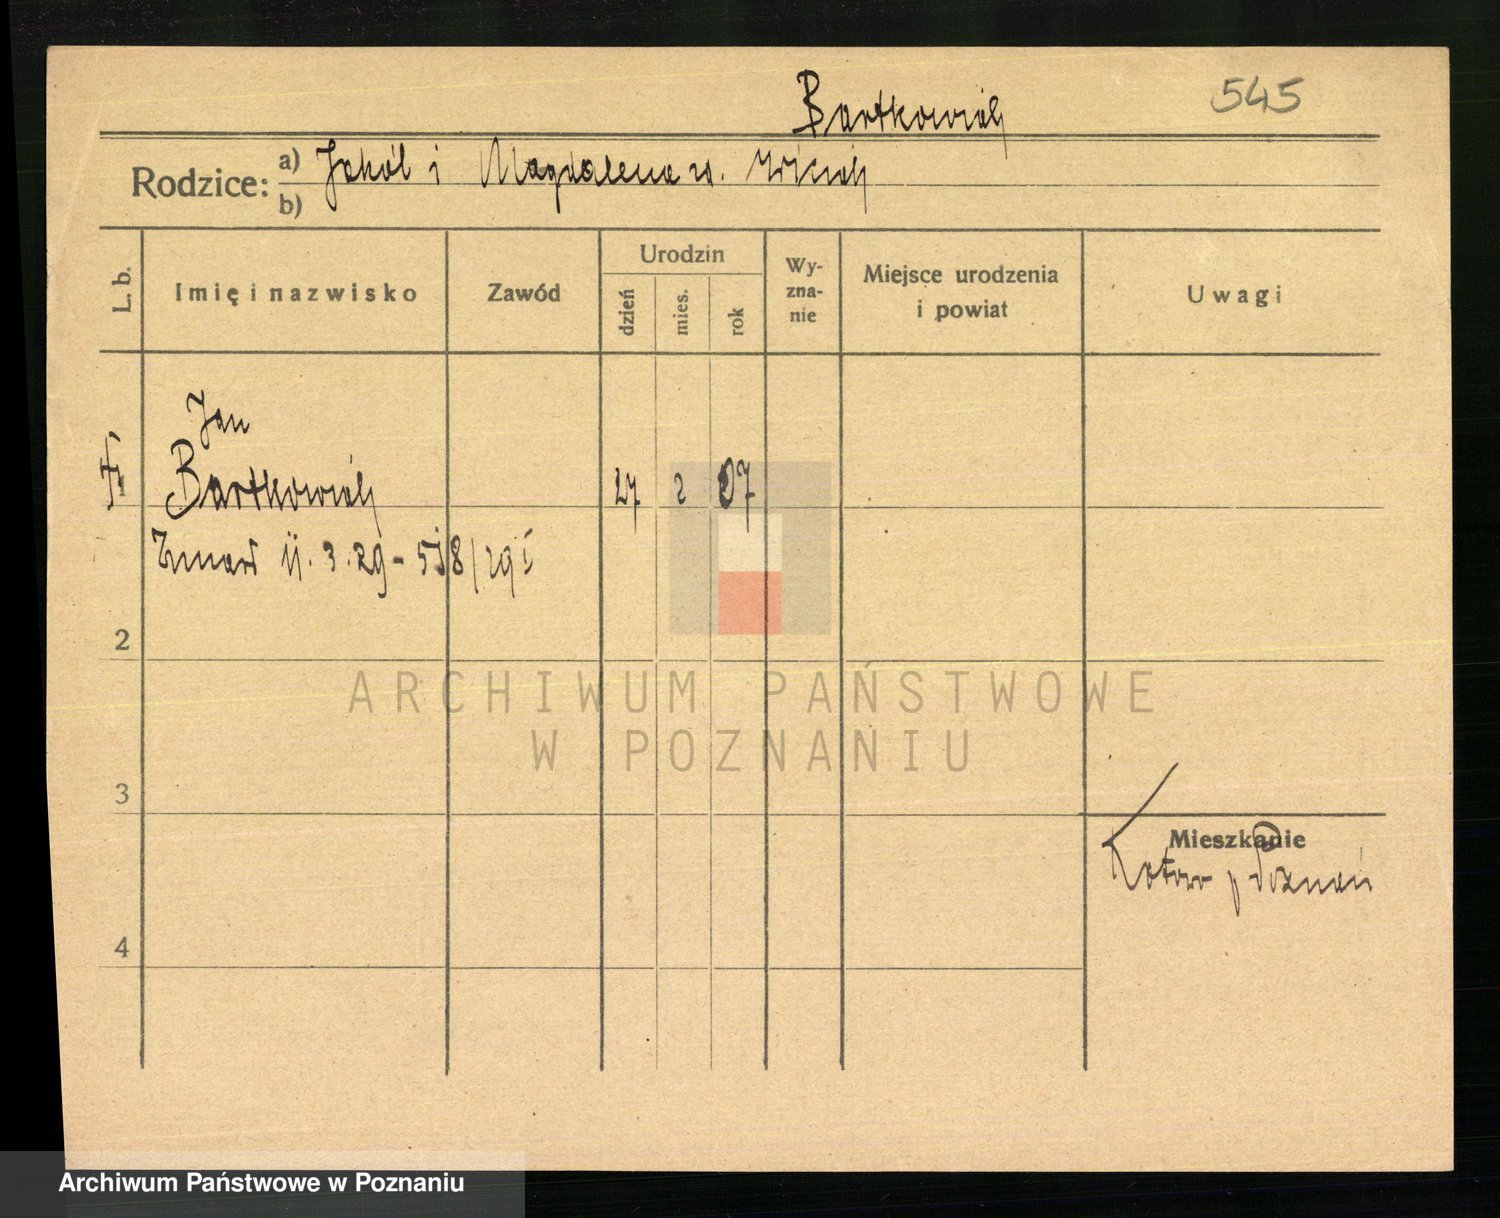 545
Bartkowiak
Rodzice: a) Jakób i Magdalena w.
b)
L. b.
Imię i nazwisko
Zawód
Urodzin
dzień
mies.
rok
Wy-
zna-
nie
Miejsce urodzenia
i powiat
Uwagi
Jan
1 Bartkowiak 27 2 07
Zmarł 11. 3. 29 - 518/29
2
3
4
Mieszkanie
Kotowo p Poznań
ARCHIWUM PAŃSTWOWE
W POZNANIU
Archiwum Państwowe w Poznaniu